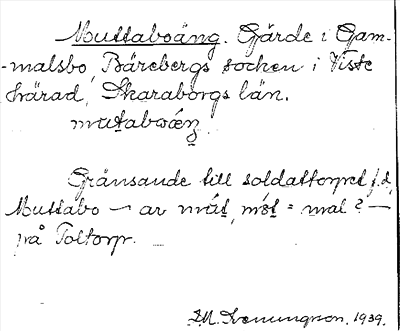 Muttaboäng. Gärde i Gam-
-malsbo, Bärebergs socken i Viste
härad, Skaraborgs län.
Gränsande till soldattorpet f.d.
Muttabo — av = mal? —
på Toltorp.
I.M. Svenungson. 1939.